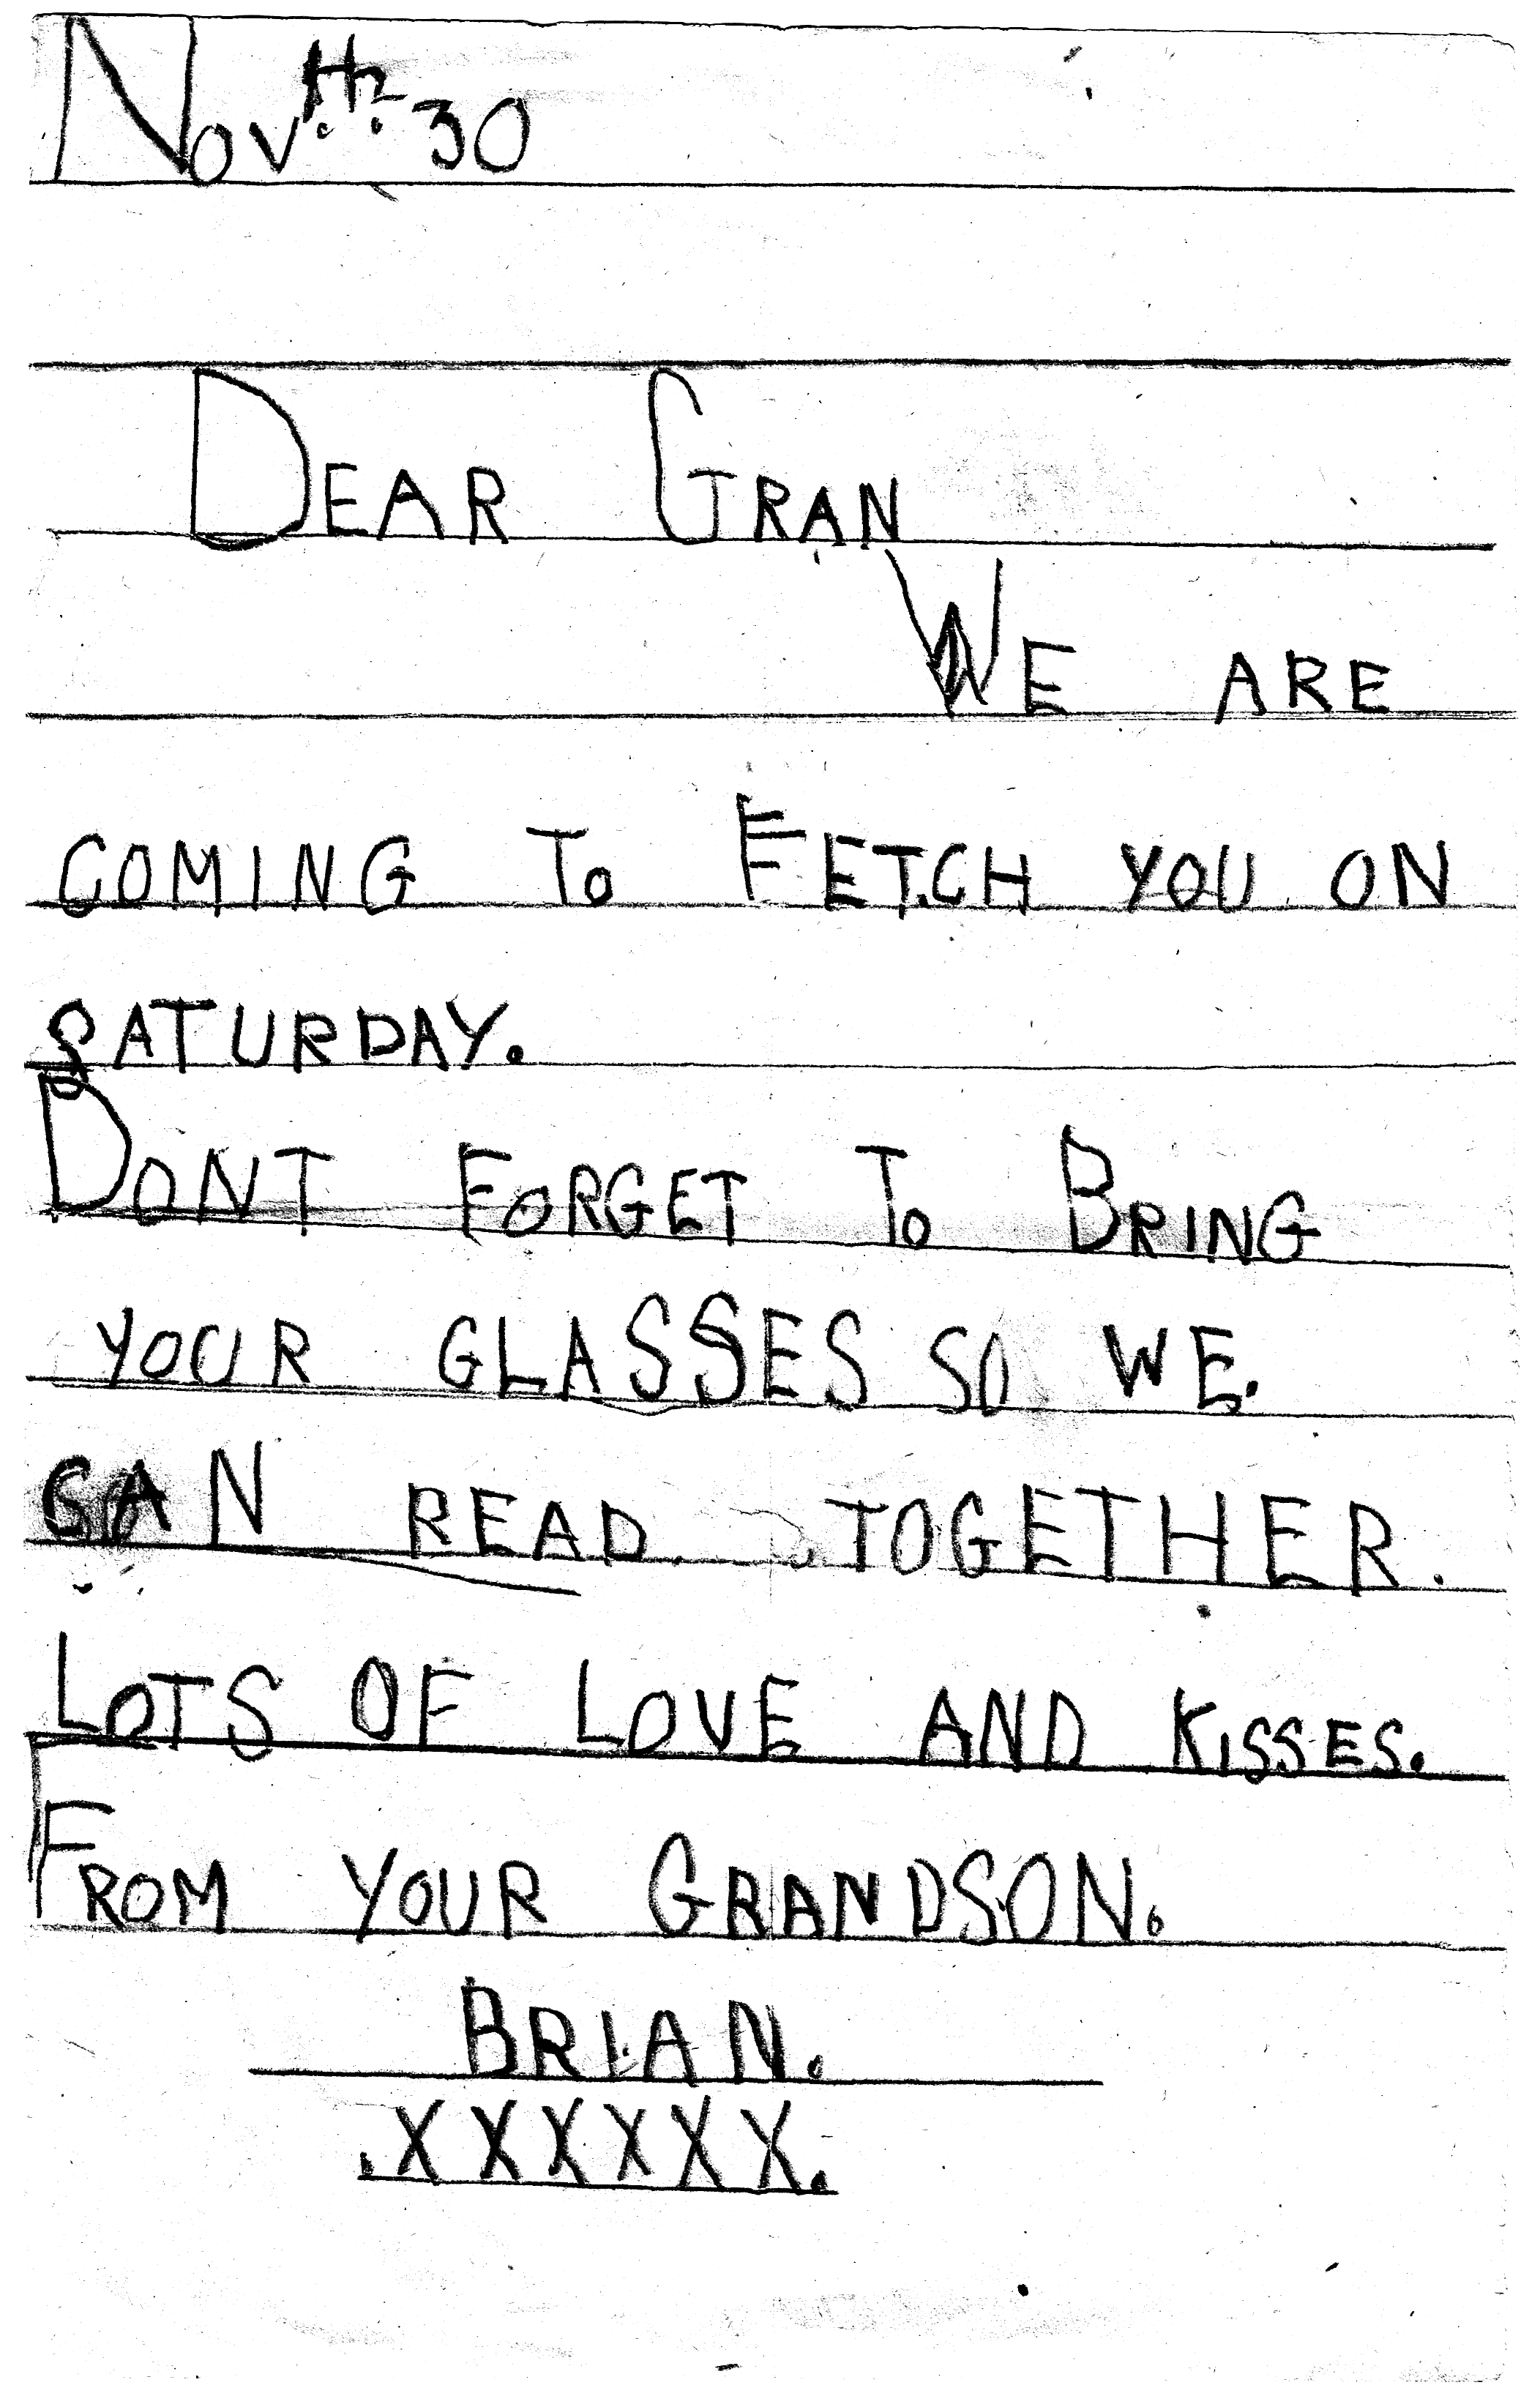 Nov.th. 30
DEAR GRAN
WE ARE
COMING To FETCH YOU ON
SATURDAY.
DONT FORGET To BRING
YOUR GLASSES SO WE.
CAN READ TOGETHER.
LOTS OF LOVE AND KISSES.
FROM YOUR GRANDSON.
BRIAN.
.XXXXXX.